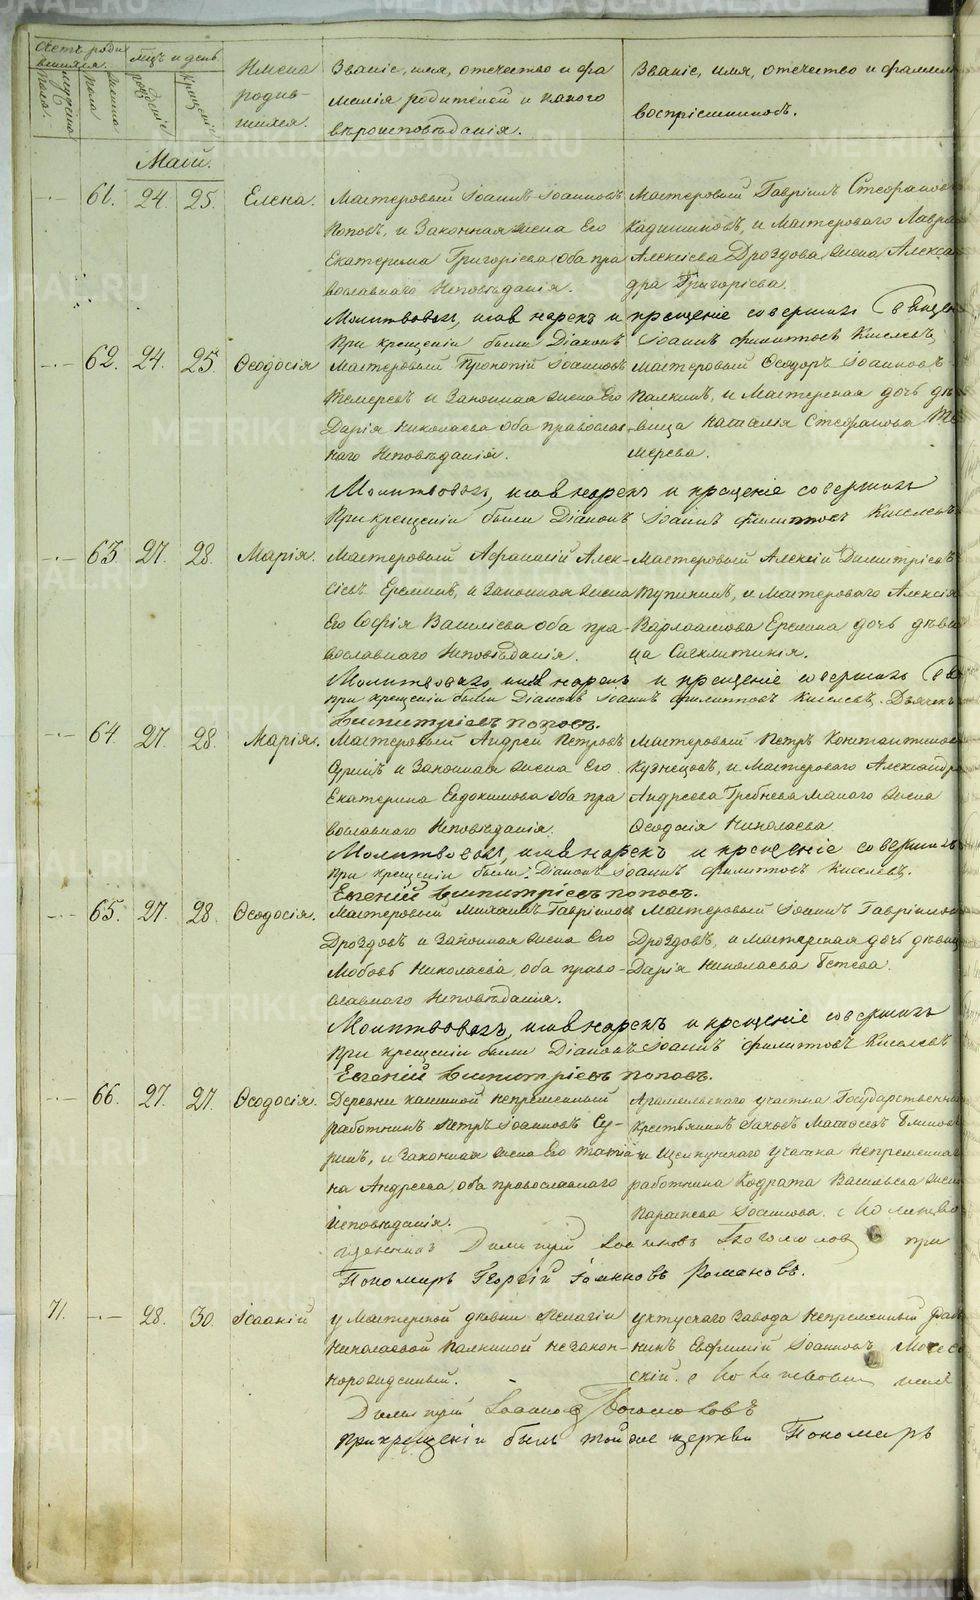 Счетъ роди
вшихся.
мцъ и день
Имена
родив-
шихся.
Званіе, имя, отечество и фа
милія родителей и какого
вѣроисповѣданія.
Званіе, имя, отечество и фамилія
воспріемниковъ.
мужеска пола.
женска пола
рожденіе
крещеніе
Маій.
61. 24. 25. Елена.
Мастеровый Іоаннъ Іоанновъ
Поповъ, и Законная жена Его
Екатерина Григоріева, оба пра
вославнаго Исповѣданія.
Мастеровый Гавріилъ Стефановъ
Кадишниковъ, и Мастероваго Лавра
Алексіева Дроздова жена Алекса
дра Григоріева.
Молитвовалъ, имя нарекъ и крещеніе совершилъ
При крещеніи были Діаконъ Іоаннъ Филиповъ Киселевъ
62. 24. 25. Ѳеодосія
Мастеровый Прокопій Іоанновъ
Темеревъ и Законная жена Его
Дарія Николаева оба православ
наго Исповѣданія.
Мастеровый Ѳеодоръ Іоанновъ
Палкинъ, и Мастерская дочь дѣ
вица Наталія Стефанова Те
мерева.
Молитвовалъ, имя нарекъ и крещеніе совершилъ
При крещеніи были Діаконъ Іоаннъ Филиповъ Киселевъ
63. 27. 28. Марія.
Мастеровый Афанасій Алек-
сіевъ Ереминъ, и Законная жена
Его Софія Василіева оба пра-
вославнаго Исповѣданія.
Мастеровый Алексій Димитріевъ
Тупицинъ, и Мастероваго Алексія
Варлаамова Еремина дочь дѣви
ца Сигклитикія.
Молитвовалъ, имя нарекъ и крещеніе совершилъ
при крещеніи были Діаконъ Іоаннъ Филиповъ Киселевъ. Дьячекъ
Димитріевъ Поповъ.
64. 27. 28. Марія.
Мастеровый Андрей Петровъ
Суринъ и Законная жена Его
Екатерина Евдокимова оба пра
вославнаго Исповѣданія.
Мастеровый Петръ Константиновъ
Кузнецовъ, и Мастероваго Александра
Андреева Гребнева Малаго жена
Ѳеодосія Николаева
Молитвовалъ, имя нарекъ и крещеніе совершилъ
при крещеніи были: Діаконъ Іоаннъ Филиповъ Киселевъ.
Евгеній Димитріевъ Поповъ.
65. 27. 28. Ѳеодосія.
Мастеровый Михаилъ Гавріиловъ
Дроздовъ и Законная жена Его
Любовь Николаева, оба право-
славнаго Исповѣданія.
Мастеровый Іоаннъ Гавріиловъ
Дроздовъ, и Мастерская дочь дѣвица
Дарія Николаева Бетева.
Молитвовалъ, имя нарекъ и крещеніе совершилъ
При крещеніи были Діаконъ Іоаннъ Филиповъ Киселевъ
Евгеній Димитріевъ Поповъ.
66. 27. 27. Ѳеодосія.
Деревни каменной непремѣнный
работникъ Петръ Іоанновъ Су-
ринъ, и Законная жена Его Татія-
на Андреева, оба православнаго
Исповѣданія.
Арамильскаго участка Государственный
крестьянинъ Іаковъ Матѳеевъ
и Щелкунскаго участка непремѣннаго
работника Кодрата Васильева жена
Параскева Іоакимова.
Димитрій Іоанновъ Богомоловъ при
Пономарь Георгій Іоанновъ Романовъ.
71. 28. 30. Исаакій
у Мастерской дѣвки Пелагіи
Николаевой Палкиной незакон-
норожденный.
Уктускаго Завода Непремѣнный
никъ Евфимій Іоанновъ
скій.
Димитрій Іоанновъ Богомоловъ
При крещеніи былъ той же церкви Пономарь
METRIKI.GASO-URAL.RU